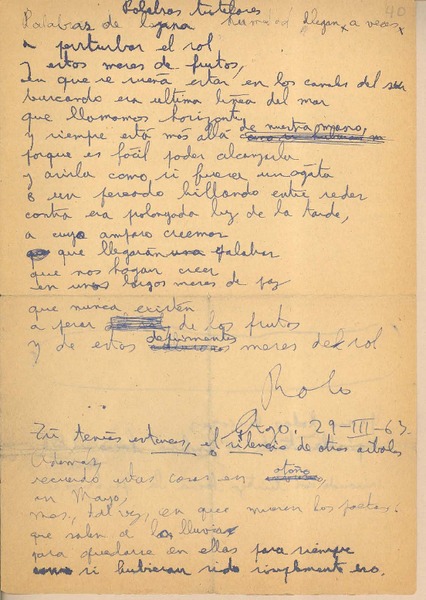 Palabras tutelares
40
Palabras de lozana humedad llegan, a veces,
a perturbar el sol
y estos meses de frutos,
en que se sueña estar en los canales del sur
buscando esa última línea del mar
que llamamos horizonte
y siempre está más allá de nuestra mano,
porque es fácil poder alcanzarla
y asirla como si fuera un ágata
o un pescado brillando entre redes
contra esa prolongada luz de la tarde,
a cuyo amparo creemos
que llegarán palabras
que nos hagan creer
en unos largos meses de paz
que nunca existen
a pesar de los frutos
y de estos meses del sol
Rolo
Stgo. 29-III-63.
Tú tenías entonces, el silencio de otros árboles
Además,
recuerdo estas cosas en otoño
en Mayo,
mes, tal vez, en que mueren los poetas
que salen de las lluvias
para quedarse en ellas para siempre
como si hubieran sido simplemente eso.